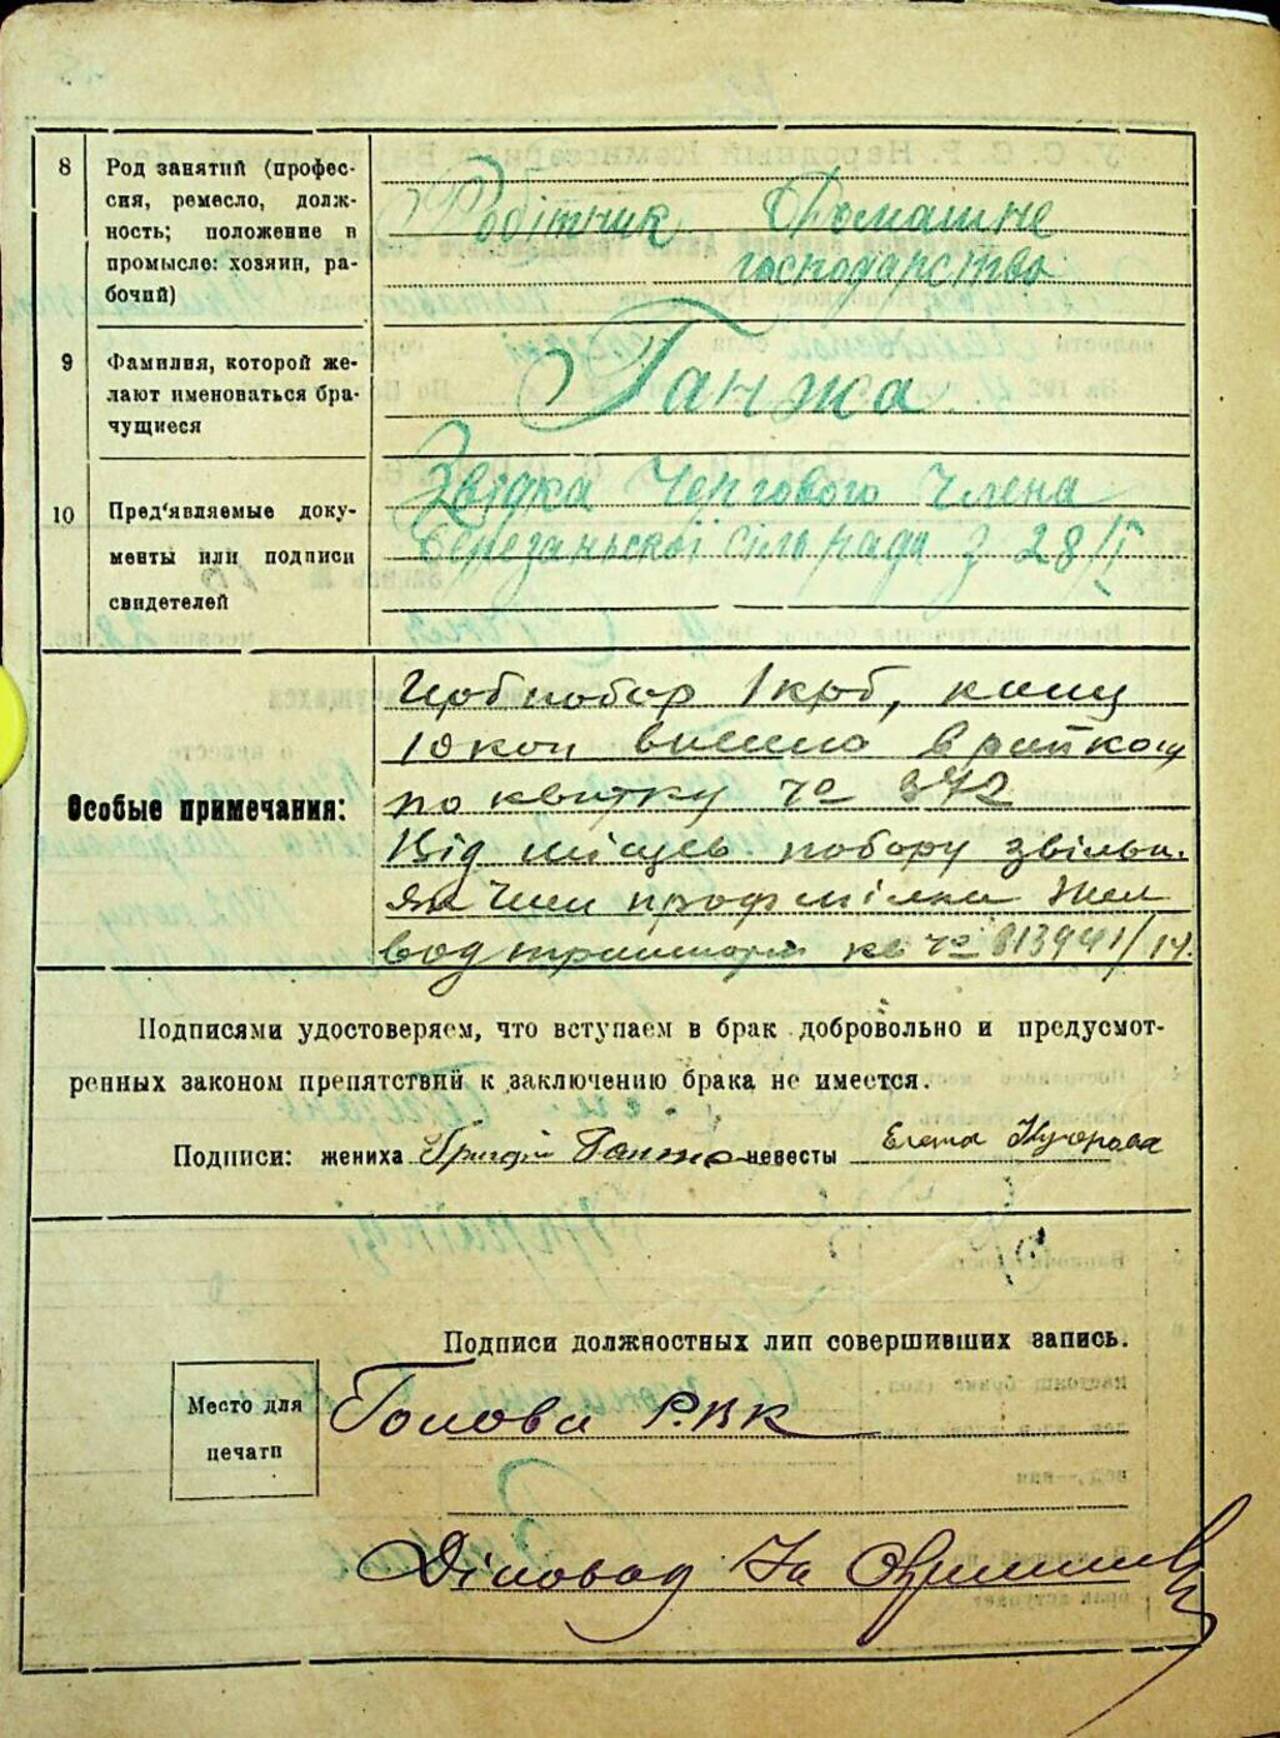 8
Род занятий (профес-
сия, ремесло, долж-
ность; положение в
промысле: хозяин, ра-
бочий)
Робітник Домашне
господарство
9
Фамилия, которой же-
лают именоваться бра-
чущиеся
Ганжа
10
Пред'являемые доку-
менты или подписи
свидетелей
Звідка Чергового Члена
Березанської сільради з 28/II
Особые примечания:
побор 1 крб,
10 коп внесено в райкасу
по квитку №
Від місцев побору звільн.
як член профспілки
кв №
Подписями удостоверяем, что вступаем в брак добровольно и предусмот-
ренных законом препятствий к заключению брака не имеется.
Подписи: жениха Григорій Ганжа невесты Елена
Подписи должностных лип совершивших запись.
Место для
печати
Голова РВК
Діловод